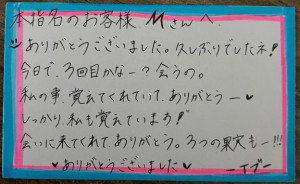 本指名のお客様 Mさんへ
ありがとうございました。久しぶりでしたネ!
今日で、3回目かなー?会うの。
私の事、覚えてくれていて、ありがとうー♥
しっかり、私も覚えています!
会いに来てくれて、ありがとう。3つの果実もー!!!
♥ありがとうございました♥ ーイブー